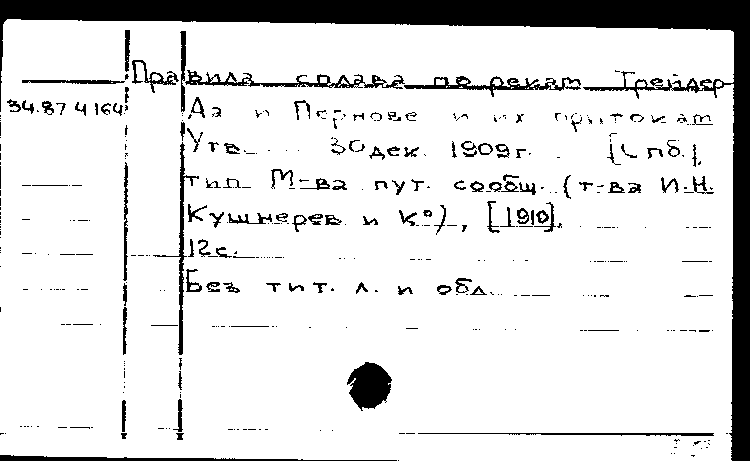 Правила сплава по рекам Трейдер
34.87 4164 Аа и Пернове и их притокам
Утв. 30 дек. 1909 г. [Спб.],
тип. М-ва пут. сообщ. (т-ва И.Н.
Кушнерев и К°), [1910].
12 с.
Без тит. л. и обл.